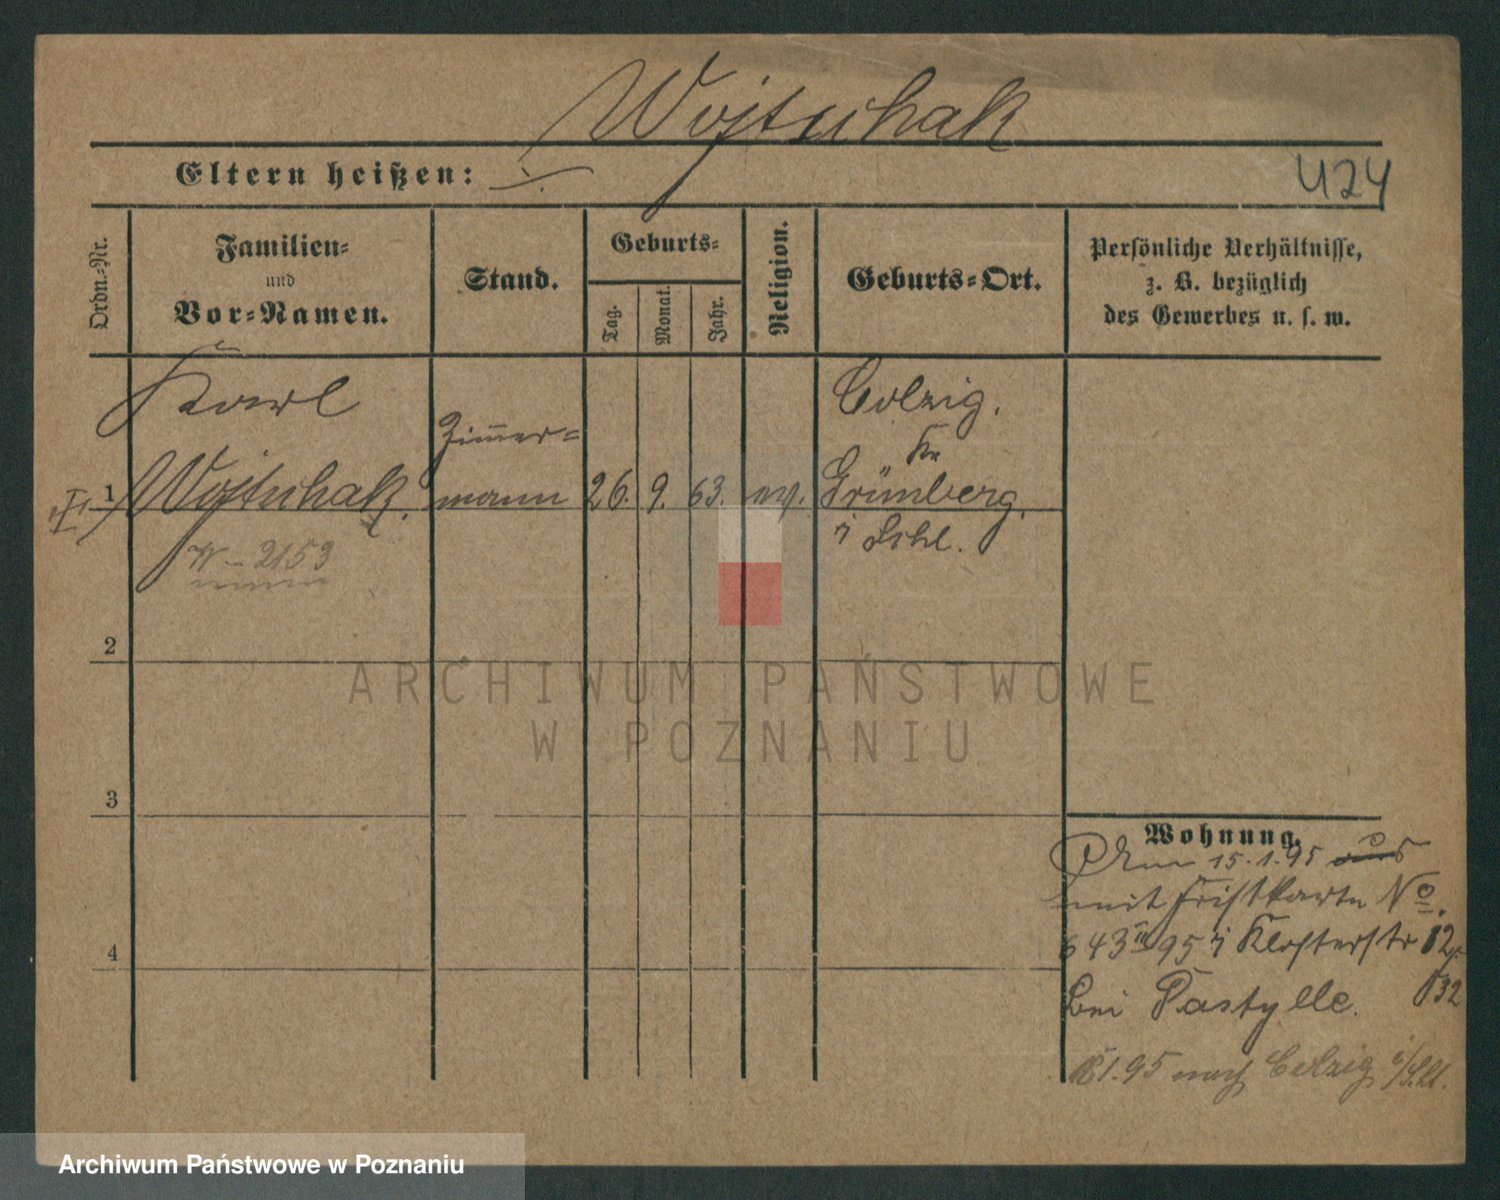 Wojtschak
Eltern heißen:
424
Ordn.=Nr.
Familien=
und
Vor=Namen.
Stand.
Geburts=
Tag.
Monat.
Jahr.
Religion.
Geburts=Ort.
Persönliche Verhältnisse,
z. B. bezüglich
des Gewerbes u. s. w.
Karl
Colzig.
Zimmer=
Kr
1 Wojtschak. mann 26. 9. 63. ev. Grünberg.
i Schl.
W - 2153
2
ARCHIWUM PAŃSTWOWE
W POZNANIU
3
Wohnung.
15.1.95 aus
mit Fristkarte No.
643 95 i Klosterstr 12
bei Pastylle.
1.95 nach Colzig i/Schl.
4
Archiwum Państwowe w Poznaniu